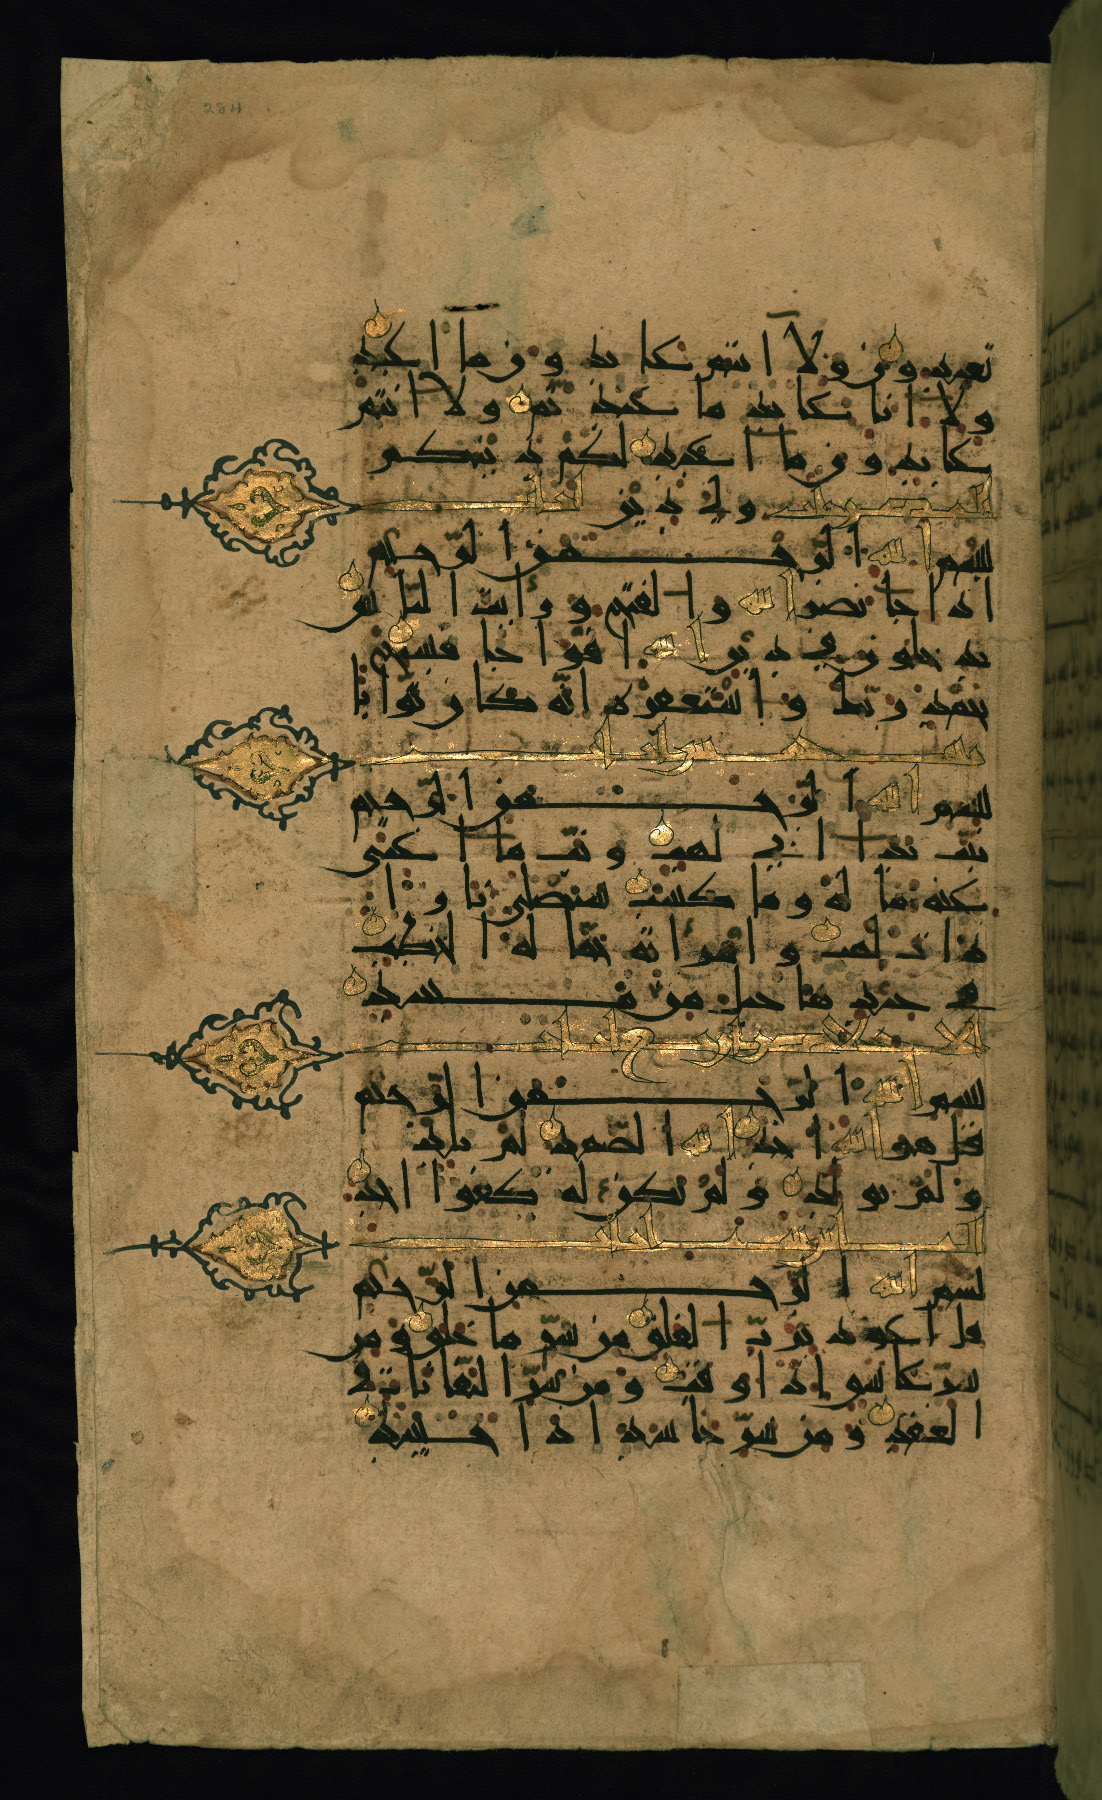 284
تعبدون ولا انتم عابدون ما اعبد
ولا انا عابد ما عبدتم ولا انتم
عابدون ما اعبد لكم دينكم
ولي دين
بسم الله الرحمن الرحيم
اذا جا نصر الله والفتح ورايت الناس
يدخلون في دين الله افواجا فسبح
بحمد ربك واستغفره انه كان توابا
بسم الله الرحمن الرحيم
تبت يدا ابي لهب وتب ما اغنى
عنه ماله وما كسب سيصلى نارا
ذات لهب وامراته حمالة الحطب
في جيدها حبل من مسد
الاخلاص اربع ايات
بسم الله الرحمن الرحيم
قل هو الله احد الله الصمد لم يلد
ولم يولد ولم يكن له كفوا احد
بسم الله الرحمن الرحيم
قل اعوذ برب الفلق من شر ما خلق ومن
شر غاسق اذا وقب ومن شر النفاثات في
العقد ومن شر حاسد اذا حسد